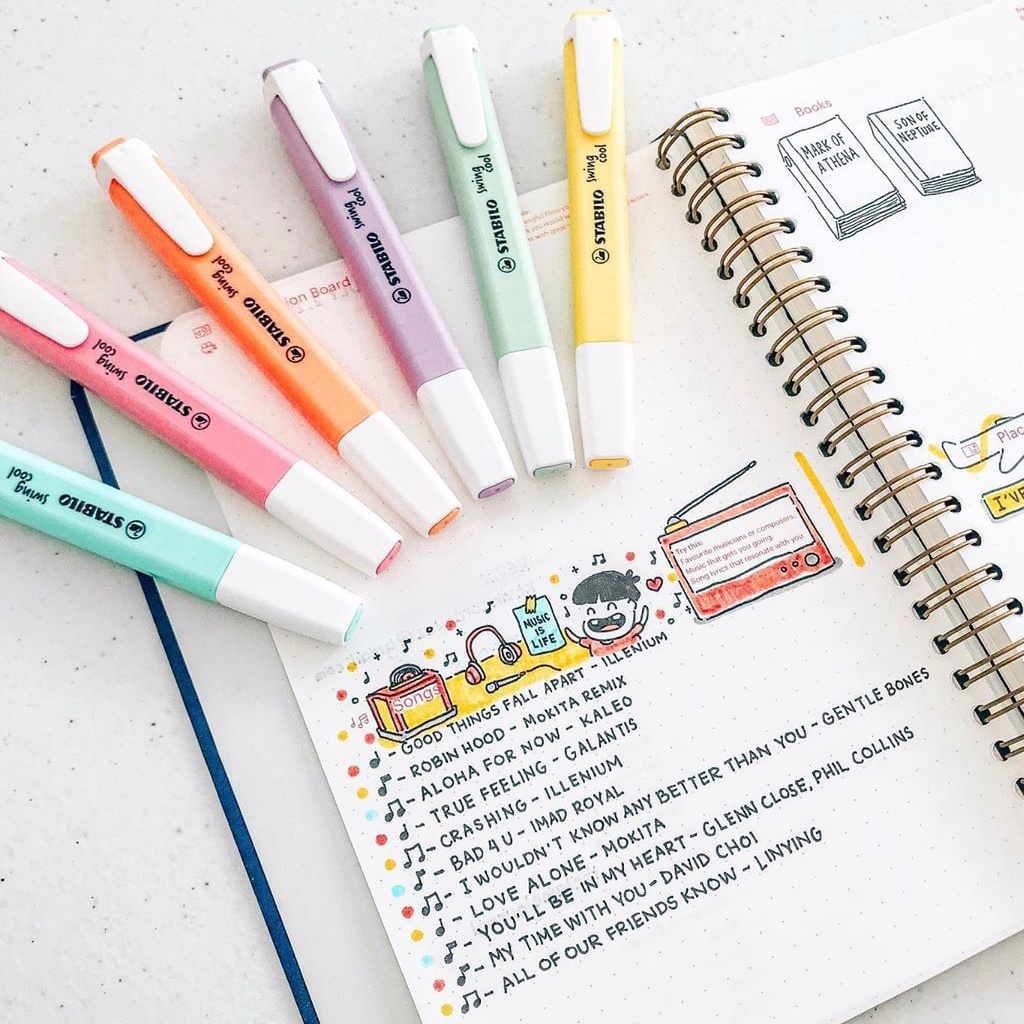 STABILO swing cool
STABILO swing cool
STABILO swing cool
STABILO swing cool
STABILO swing cool
STABILO swing cool
ion Board
Books
MARK OF
ATHENA
SON OF
NEPTUNE
Plac
I'VE
Try this:
Favourite musicians or composers.
Music that gets you going.
Song lyrics that resonate with you.
MUSIC
IS
LIFE
Songs
- GOOD THINGS FALL APART - ILLENIUM
- ROBIN HOOD - MOKITA REMIX
- ALOHA FOR NOW - KALEO
- TRUE FEELING - GALANTIS
- CRASHING - ILLENIUM
- BAD 4 U - IMAD ROYAL
- I WOULDN'T KNOW ANY BETTER THAN YOU - GENTLE BONES
- LOVE ALONE - MOKITA
- YOU'LL BE IN MY HEART - GLENN CLOSE, PHIL COLLINS
- MY TIME WITH YOU - DAVID CHOI
- ALL OF OUR FRIENDS KNOW - LINYING